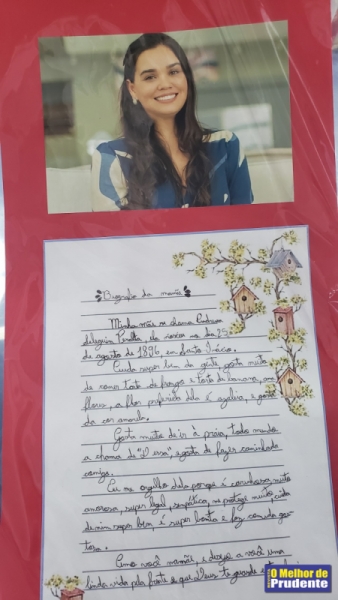 Biografia da mamãe
Minha mãe se chama
Peralta, ela nasceu no dia 25
de agosto de 1896, em Santo Inácio.
Cuida super bem da gente, gosta muito
de comer torta de frango e torta de banana,
flores, a flor preferida dela é azaleia, e gosta
da cor amarela.
Gosta muito de ir à praia, todo mundo
a chama de e gosta de fazer caminhada
comigo.
dela porque é carinhosa, muito
amorosa, super legal, simpática, me protege muito, cuida
de mim super bem é super bonita e faz comida gos-
tosa.
Amo você mamãe, e desejo a você uma
linda vida pela frente e que Deus te guarde
O Melhor de
Prudente